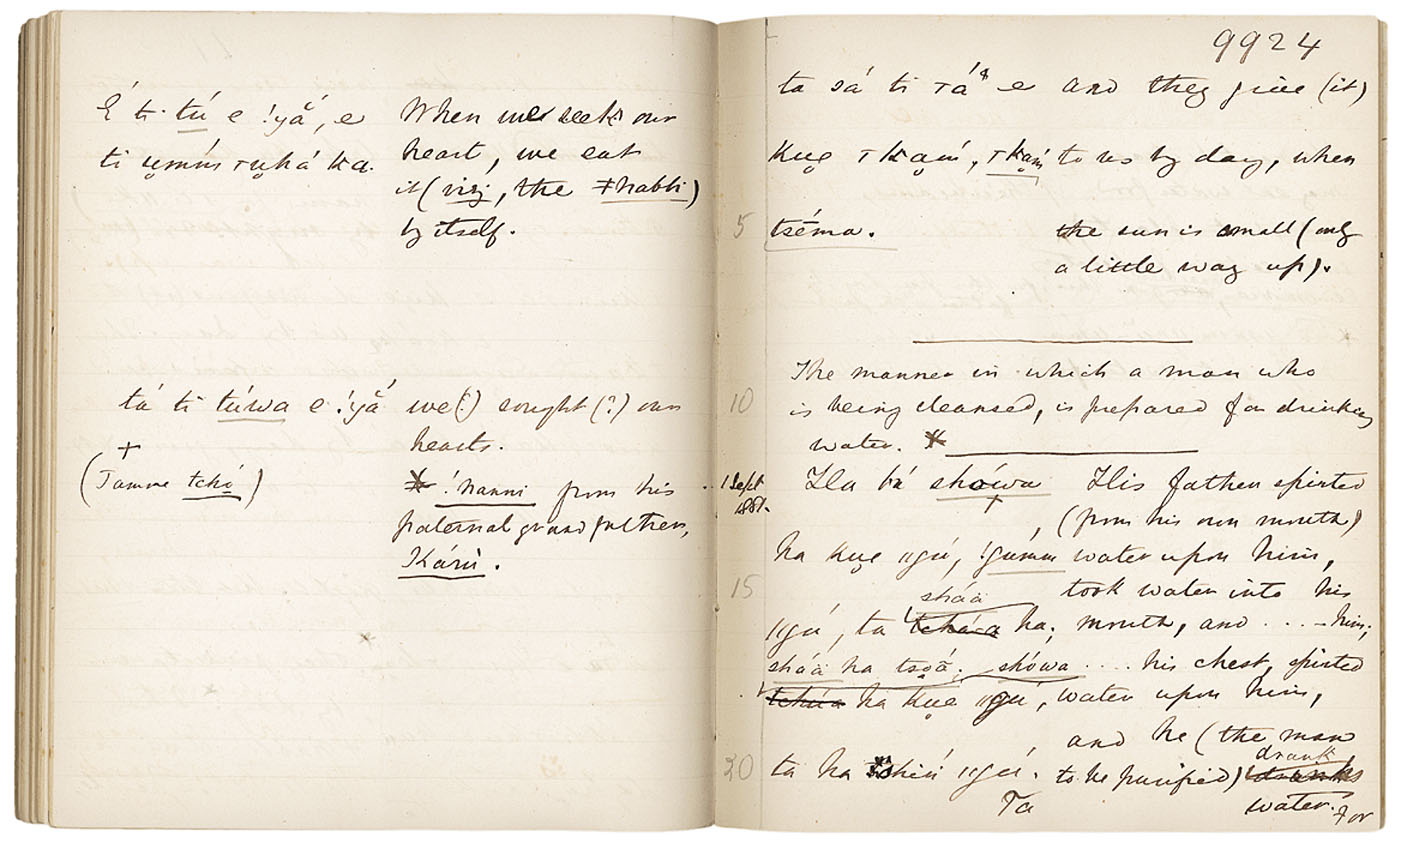 É ti tú e !yắ, e When we seek our
ti u̥mḿ ru̥há ka. heart, we eat
it (viz, the ǂnabbi)
by itself.
tá ti túwa e !yắ we(?) sought (?) our
hearts.
(Tamme tchó) ǃnanni from his
paternal grandfather,
Káru.
9924
ta sá ti e and they give (it)
to us by day, when
5 tséma. the sun is small (only
a little way up).
The manner in which a man who
10 is being cleansed, is prepared for drinking
water.
1 Sept 1881. Ha bá shówa His father spirted
(from his own mouth)
ha kue ǁgú, !gumm water upon him,
15 took water into his
sháa
ǁgú, ta tcháa ha; mouth, and . . . - him;
sháa ha shówa . . . . his chest, spirted
tcháa ha kue ǁgú, water upon him,
and he (the man
drank
20 ta ha ǁgú. to be purified) drinks
Ta water. For